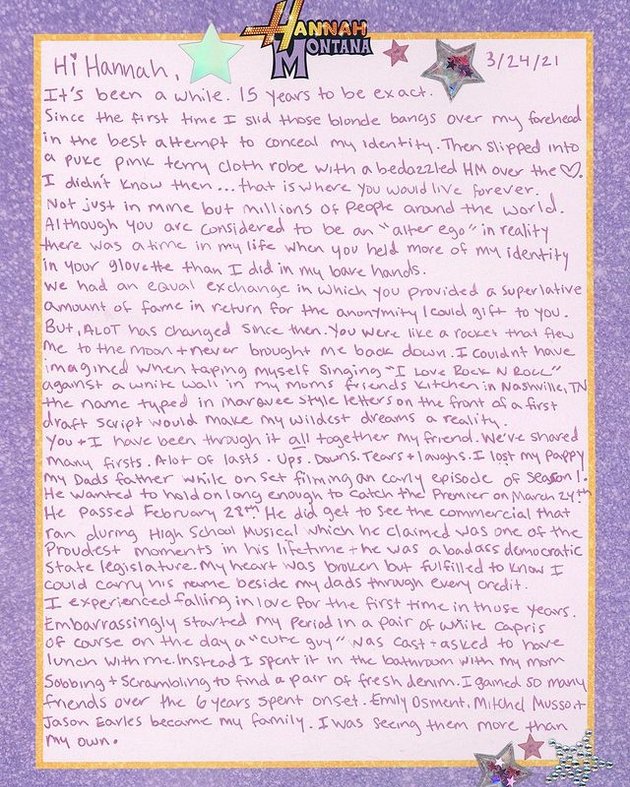 HANNAH
MONTANA
Hi Hannah,
3/24/21
It's been a while. 15 years to be exact.
Since the first time I slid those blonde bangs over my forehead
in the best attempt to conceal my identity. Then slipped into
a puke pink terry cloth robe with a bedazzled HM over the ♡.
I didn't know then... that is where you would live forever.
Not just in mine but millions of people around the world.
Although you are considered to be an "alter ego" in reality
there was a time in my life when you held more of my identity
in your glovette than I did in my bare hands.
We had an equal exchange in which you provided a superlative
amount of fame in return for the anonymity I could gift to you.
But, ALOT has changed since then. You were like a rocket that flew
me to the moon + never brought me back down. I couldn't have
imagined when taping myself singing "I LOVE ROCK N ROLL"
against a white wall in my moms friends kitchen in Nashville, TN
the name typed in Marquee style letters on the front of a first
draft script would make my wildest dreams a reality.
You + I have been through it all together my friend. We've shared
many firsts. Alot of lasts. Ups. Downs. Tears + laughs. I lost my Pappy
my Dads father while on set filming an early episode of season 1.
He wanted to hold on long enough to catch the Premier on March 24th.
He passed February 28th. He did get to see the commercial that
ran during High School Musical which he claimed was one of the
Proudest moments in his lifetime + he was a badass democratic
State legislature. My heart was broken but fulfilled to know I
could carry his name beside my dads through every credit.
I experienced falling in love for the first time in those years.
Embarrassingly started my period in a pair of white capris
of course on the day a "cute guy" was cast + asked to have
lunch with me. Instead I spent it in the bathroom with my mom
Sobbing + Scrambling to find a pair of fresh denim. I gained so many
friends over the 6 years spent onset. Emily Osment, Mitchel Musso, +
Jason Earles became my family. I was seeing them more than
my own.